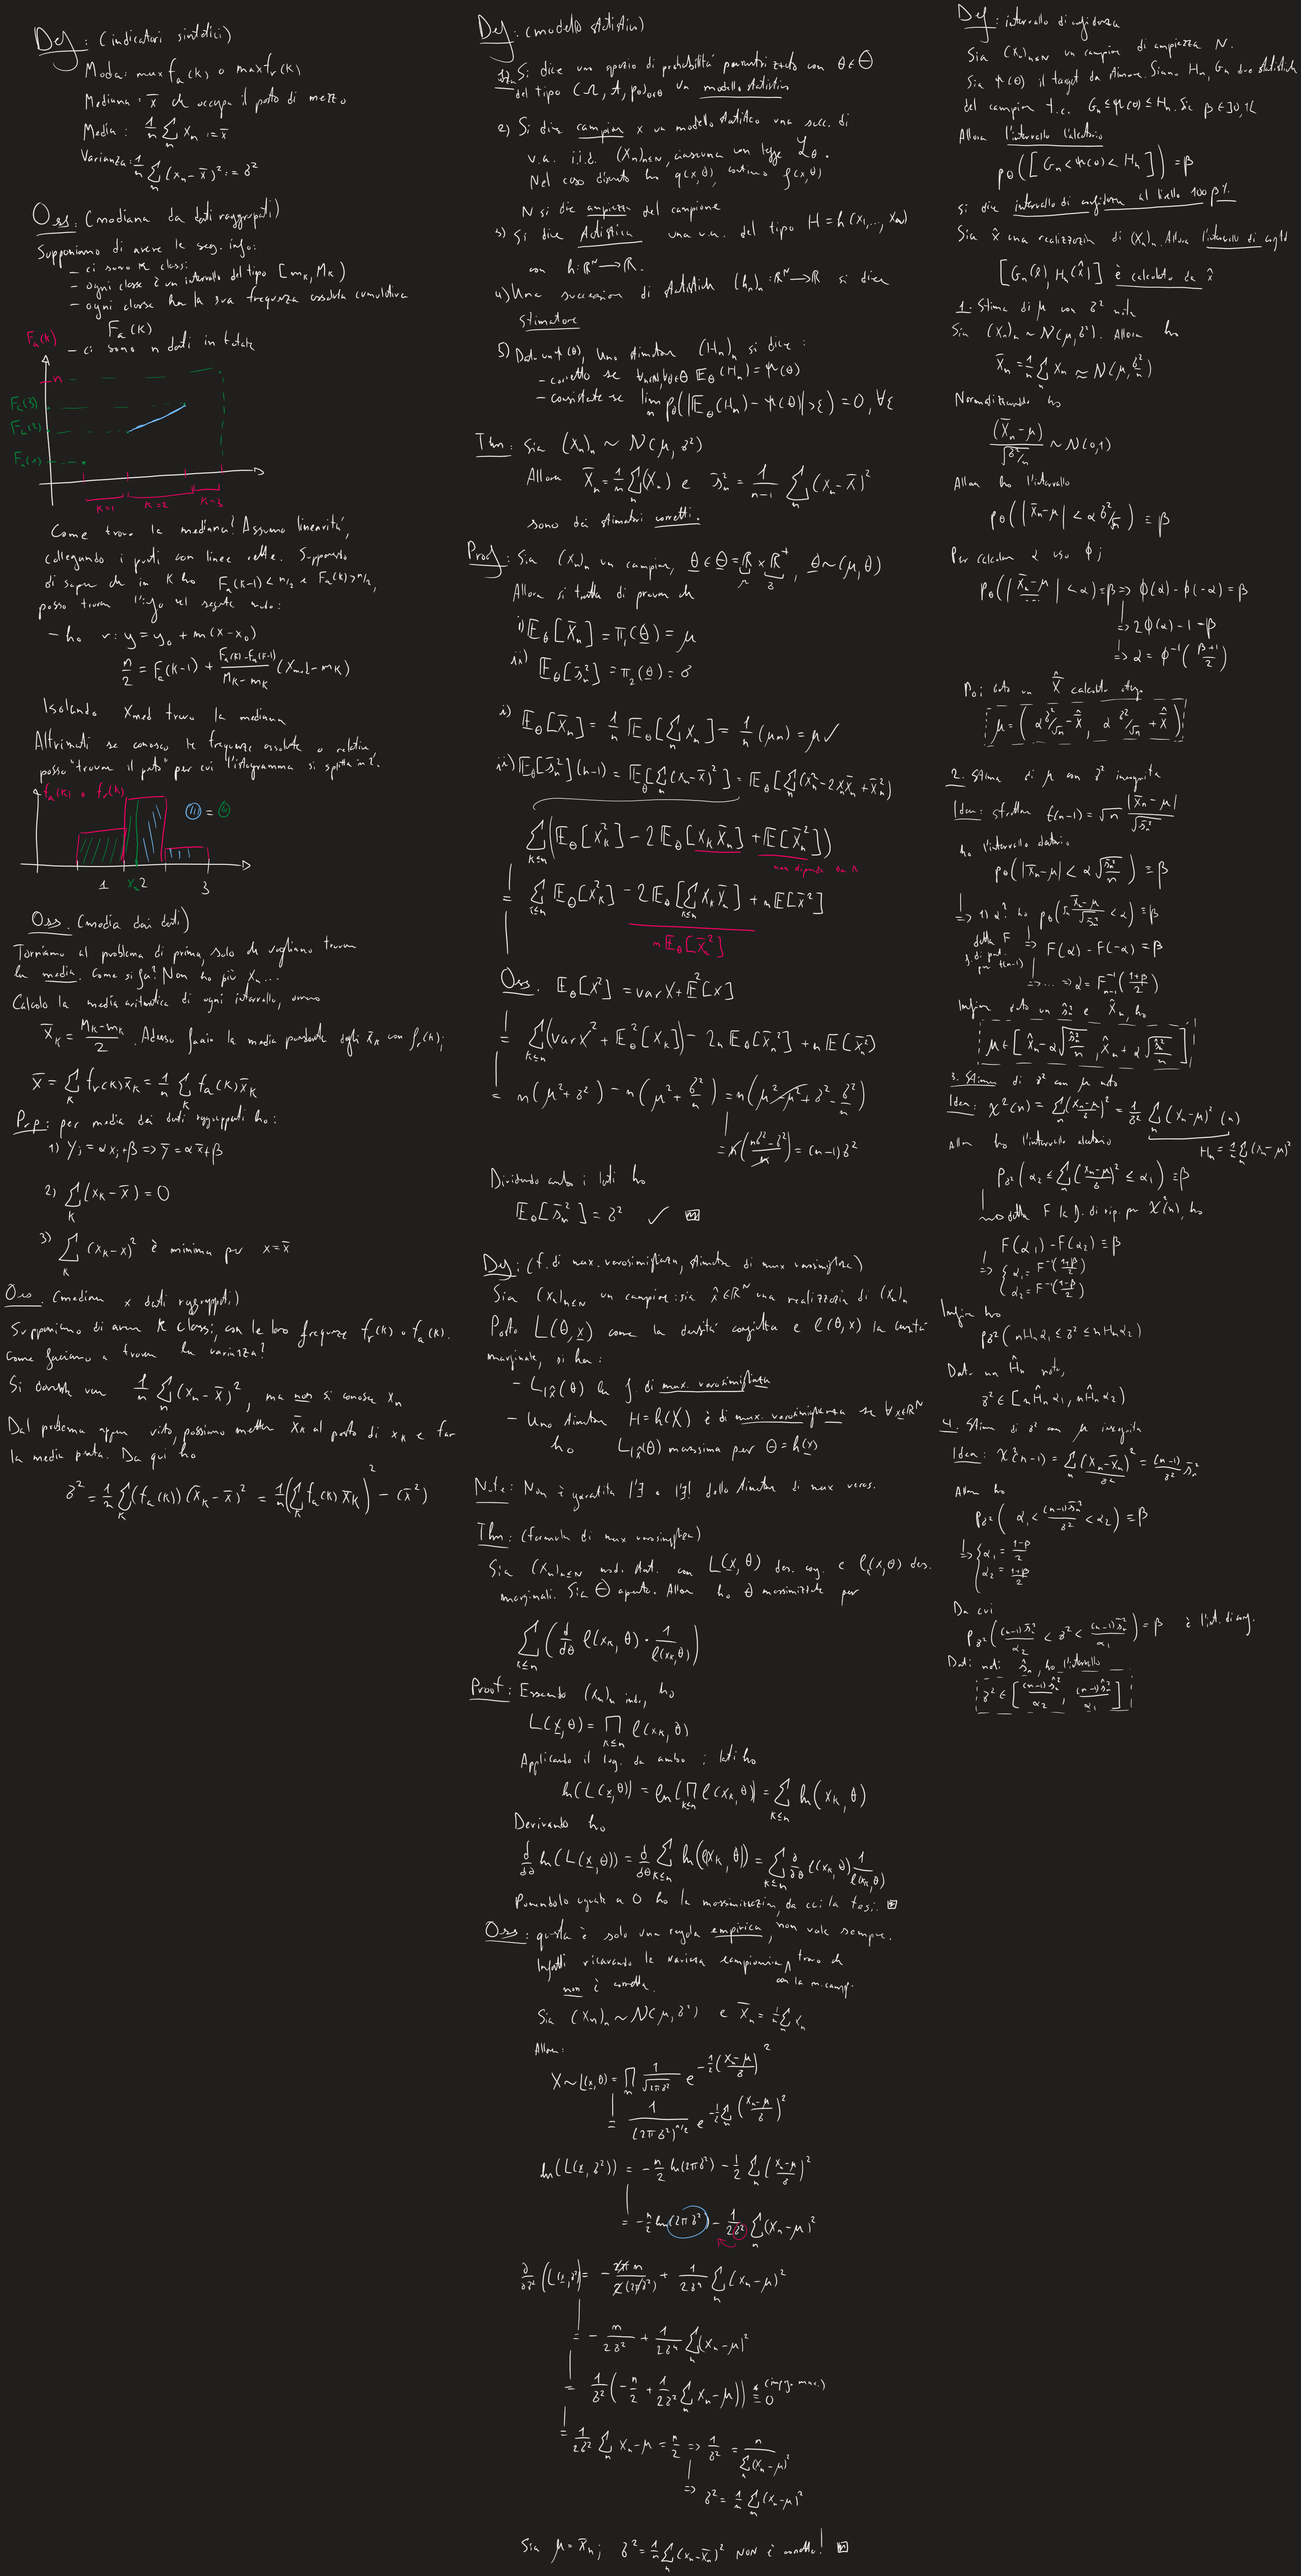 Def: (indicatori sintetici)
Moda: max fₐ(k) o max fᵣ(k)
Mediana: x̄ che occupa il posto di mezzo
Media: 1/n ∑ₙ xₙ := x̄
Varianza: 1/n ∑ₙ (xₙ - x̄)² := σ²
Oss: (mediana da dati raggruppati)
Supponiamo di avere le seg. info:
- ci sono K classi
- ogni classe è un intervallo del tipo [mₖ, Mₖ)
- ogni classe ha la sua frequenza assoluta cumulativa
Fₐ(k)
- ci sono n dati in totale
Fₐ(k)
n
Fₐ(3)
Fₐ(2)
Fₐ(1)
k=1 k=2 k=3
Come trovo la mediana? Assumo linearità,
collegando i punti con linee rette. Supposto
di sapere che in k ho Fₐ(k-1) < n/2 e Fₐ(k) > n/2,
posso trovare l'info nel seguente modo:
- ho r: y = y₀ + m(x-x₀)
n/2 = Fₐ(k-1) + (Fₐ(k)-Fₐ(k-1))/(Mₖ-mₖ) (Xmed - mₖ)
Isolando Xmed trovo la mediana
Altrimenti se conosco le frequenze assolute o relative,
posso "trovare il punto" per cui l'istogramma si splitta in 2.
fₐ(k) o fᵣ(k)
=
1 2 3
Oss. (media dai dati)
Torniamo al problema di prima, solo che vogliamo trovare
la media. Come si fa? Non ho più xₙ...
Calcolo la media aritmetica di ogni intervallo, ovvero
x̄ₖ = (Mₖ-mₖ)/2. Adesso faccio la media ponderata degli x̄ₖ con fᵣ(k);
x̄ = ∑ₖ fᵣ(k) x̄ₖ = 1/n ∑ₖ fₐ(k) x̄ₖ
Prp: per media dei dati raggruppati ho:
1) yⱼ = αxⱼ+β => ȳ = αx̄+β
2) ∑ₖ (xₖ - x̄) = 0
3) ∑ₖ (xₖ-x)² è minima per x = x̄
Oss. (mediana x dati raggruppati)
Supponiamo di avere K classi, con le loro frequenze fᵣ(k) o fₐ(k).
Come facciamo a trovare la varianza?
Si dovrebbe usare 1/n ∑ₙ (xₙ - x̄)², ma non si conosce xₙ
Dal problema appena visto, possiamo mettere x̄ₖ al posto di xₖ e far
la media pesata. Da qui ho
σ² = 1/n ∑ₖ (fₐ(k)) (x̄ₖ - x̄)² = 1/n (∑ₖ fₐ(k) x̄ₖ)² - (x̄²)
Def: (modello statistico)
Si dice uno spazio di probabilità parametrizzato con θ∈Θ
del tipo (Ω, A, pθ)θ∈Θ un modello statistico
2) Si dice campione x un modello statistico una succ. di
v.a. i.i.d. (Xₙ)n≤N, ciascuna con legge Lθ.
Nel caso discreto ho q(x,θ), continuo f(x,θ)
N si dice ampiezza del campione
3) Si dice statistica una v.a. del tipo H = h(X₁,...,Xₙ)
con h: ℝᴺ → ℝ.
4) Una successione di statistiche (hₙ)ₙ: ℝᴺ → ℝ si dice
stimatore
5) Dato un ψ(θ), uno stimatore (Hₙ)ₙ si dice:
- corretto se ∀n∈N, ∀θ∈Θ 𝔼θ(Hₙ) = ψ(θ)
- consistente se limₙ pθ(|𝔼θ(Hₙ) - ψ(θ)| > ε) = 0, ∀ε
Thm: Sia (Xₙ)ₙ ~ N(μ, σ²)
Allora X̄ₙ = 1/n ∑ₙ (Xₙ) e s̄ₙ² = 1/(n-1) ∑ₙ (Xₙ - X̄)²
sono dei stimatori corretti.
Proof: Sia (Xₙ)ₙ un campione, θ∈Θ = ℝ × ℝ⁺, θ ~ (μ, σ)
Allora si tratta di provare che
i) 𝔼θ[X̄ₙ] = π₁(θ) = μ
ii) 𝔼θ[s̄ₙ²] = π₂(θ) = σ
i) 𝔼θ[X̄ₙ] = 1/n 𝔼θ[∑ₙ Xₙ] = 1/n (μn) = μ ✓
ii) 𝔼θ[s̄ₙ²](n-1) = 𝔼θ[∑ₙ (Xₙ-X̄)²] = 𝔼θ[∑ₙ (Xₙ² - 2XₙX̄ₙ + X̄ₙ²)]
∑k≤n (𝔼θ[Xₖ²] - 2𝔼θ[XₖX̄ₙ] + 𝔼[X̄ₙ²])
non dipende da k
= ∑k≤n 𝔼θ[Xₖ²] - 2𝔼θ[∑k≤n XₖX̄ₙ] + n𝔼[X̄²]
n𝔼θ[X̄ₙ²]
Oss. 𝔼θ[X²] = var X + 𝔼²[X]
= ∑k≤n (var X² + 𝔼θ²[Xₖ]) - 2n𝔼θ[X̄ₙ²] + n𝔼[X̄ₙ²]
= n(μ²+σ²) - n(μ² + σ²/n) = n(μ²-μ²+σ²-σ²/n)
= n((nσ²-σ²)/n) = (n-1)σ²
Dividendo ambo i lati ho
𝔼θ[s̄ₙ²] = σ² ✓
Def: (f. di max. verosimiglianza, stimatore di max verosimiglianza)
Sia (Xₙ)n≤N un campione; sia x̂∈ℝᴺ una realizzazione di (Xₙ)ₙ
Posto L(θ,x) come la densità congiunta e ℓ(θ,x) la densità
marginale, si ha:
- L|x̂(θ) la f. di max. verosimiglianza
- Uno stimatore H = h(X) è di max. verosimiglianza se ∀x∈ℝᴺ
ho L|x̂(θ) massima per θ = h(x)
Note: Non è garantita l'∃ o l'∃! dello stimatore di max veros.
Thm: (formula di max verosimiglianza)
Sia (Xₙ)n≤N mod. stat. con L(x,θ) den. cong. e ℓ(x,θ) den.
marginali. Sia Θ aperto. Allora ho θ massimizzato per
∑k≤n (d/dθ ℓ(xₖ,θ) · 1/ℓ(xₖ,θ))
Proof: Essendo (Xₙ)ₙ ind., ho
L(x,θ) = ∏k≤n ℓ(xₖ,θ)
Applicando il log. da ambo i lati ho
ln(L(x,θ)) = ln(∏k≤n ℓ(xₖ,θ)) = ∑k≤n ln(xₖ,θ)
Derivando ho
d/dθ ln(L(x,θ)) = d/dθ ∑k≤n ln(ℓ(xₖ,θ)) = ∑k≤n ∂/∂θ ℓ(xₖ,θ) 1/ℓ(xₖ,θ)
Ponendolo uguale a 0 ho la massimizzazione, da cui la tesi.
Oss: questa è solo una regola empirica, non vale sempre.
Infatti ricavando la varianza campionaria trovo che
con la m. camp.
non è corretta.
Sia (Xₙ)ₙ ~ N(μ,σ²) e X̄ₙ = 1/n ∑ₙ xₙ
Allora:
X ~ L(x,θ) = ∏ₙ 1/√(2πσ²) e^(-1/2((xₙ-μ)/σ)²)
= 1/(2πσ²)^(n/2) e^(-1/2 ∑ₙ ((xₙ-μ)/σ)²)
ln(L(x,σ²)) = -n/2 ln(2πσ²) - 1/2 ∑ₙ ((xₙ-μ)/σ)²
= -n/2 ln(2πσ²) - 1/(2σ²) ∑ₙ (xₙ-μ)²
∂/∂σ² (L(x,σ²)) = -2πn/(2(2πσ²)) + 1/(2σ⁴) ∑ₙ (xₙ-μ)²
= -n/(2σ²) + 1/(2σ⁴) ∑ₙ (xₙ-μ)²
= 1/σ² (-n/2 + 1/(2σ²) ∑ₙ xₙ-μ)) ≡ 0
= 1/(2σ²) ∑ₙ xₙ-μ = n/2 => 1/σ² = n/∑ₙ(xₙ-μ)²
=> σ² = 1/n ∑ₙ (xₙ-μ)²
Sia μ = x̄ₙ; σ² = 1/n ∑ₙ (xₙ-x̄ₙ)² NON è corretto!
Def: intervallo di confidenza
Sia (Xₙ)n≤N un campione di ampiezza N.
Sia ψ(θ) il target da stimare. Siano Hₙ, Gₙ due statistiche
del campione t.c. Gₙ ≤ ψ(θ) ≤ Hₙ. Sia β∈]0,1[
Allora l'intervallo aleatorio
pθ([Gₙ < ψ(θ) < Hₙ]) = β
si dice intervallo di confidenza al livello 100β%.
Sia x̂ una realizzazione di (Xₙ)ₙ. Allora l'intervallo di
[Gₙ(x̂), Hₙ(x̂)] è calcolato da x̂
1. Stima di μ con σ² nota
Sia (Xₙ)ₙ ~ N(μ,σ²). Allora ho
X̄ₙ = 1/n ∑ₙ Xₙ ≈ N(μ, σ²/n)
Normalizzando ho
(X̄ₙ-μ)/√(σ²/n) ~ N(0,1)
Allora ho l'intervallo
pθ(|X̄ₙ-μ| < α σ²/√n) ≡ β
Per calcolare α uso ϕ;
pθ(|(X̄ₙ-μ)/...| < α) = β => ϕ(α) - ϕ(-α) = β
=> 2ϕ(α) - 1 = β
=> α = ϕ⁻¹((β+1)/2)
Poi dato un X̂ calcolato
μ = (α σ²/√n - X̂, α σ²/√n + X̂)
2. Stima di μ con σ² incognita
Idea: sfruttare t(n-1) = √n |X̄ₙ-μ|/√(s̄ₙ²)
ho l'intervallo aleatorio
pθ(|X̄ₙ-μ| < α √(s̄ₙ²/n)) ≡ β
=> 1) α? ho pθ(√n (X̄ₙ-μ)/√(s̄ₙ²) < α) ≡ β
detta F
per t(n-1)
=> F(α) - F(-α) = β
=> ... => α = F⁻¹ₙ₋₁((1+β)/2)
Infine dato un ŝₙ² e X̂ₙ, ho
μ ∈ [X̂ₙ - α√(ŝₙ²/n), X̂ₙ + α√(ŝₙ²/n)]
3. Stima di σ² con μ noto
Idea: χ²(n) = ∑ₙ ((Xₙ-μ)/σ)² = 1/σ² ∑ₙ (Xₙ-μ)² (n)
Hₙ = 1/n ∑ₙ (Xₙ-μ)²
Allora ho l'intervallo aleatorio
Pσ²(α₂ ≤ ∑ₙ ((Xₙ-μ)/σ)² ≤ α₁) ≡ β
detta F la f. di rip. per χ²(n), ho
F(α₁) - F(α₂) ≡ β
=> { α₁ = F⁻¹((1+β)/2)
α₂ = F⁻¹((1-β)/2)
Infine ho
pσ²(nHₙα₁ ≤ σ² ≤ nHₙα₂)
Dato un Ĥₙ noto,
σ² ∈ [nĤₙα₁, nĤₙα₂)
4. Stima di σ² con μ incognita
Idea: χ²(n-1) = ∑ₙ (Xₙ-X̄ₙ)²/σ² = (n-1)/σ² s̄ₙ²
Allora ho
Pσ²(α₁ < (n-1)s̄ₙ²/σ² < α₂) ≡ β
=> { α₁ = (1-β)/2
α₂ = (1+β)/2
Da cui
Pσ²((n-1)s̄ₙ²/α₂ < σ² < (n-1)s̄ₙ²/α₁) = β è l'int. di conf.
Dati noti ŝₙ, ho l'intervallo
σ² ∈ [(n-1)ŝₙ²/α₂, (n-1)ŝₙ²/α₁]